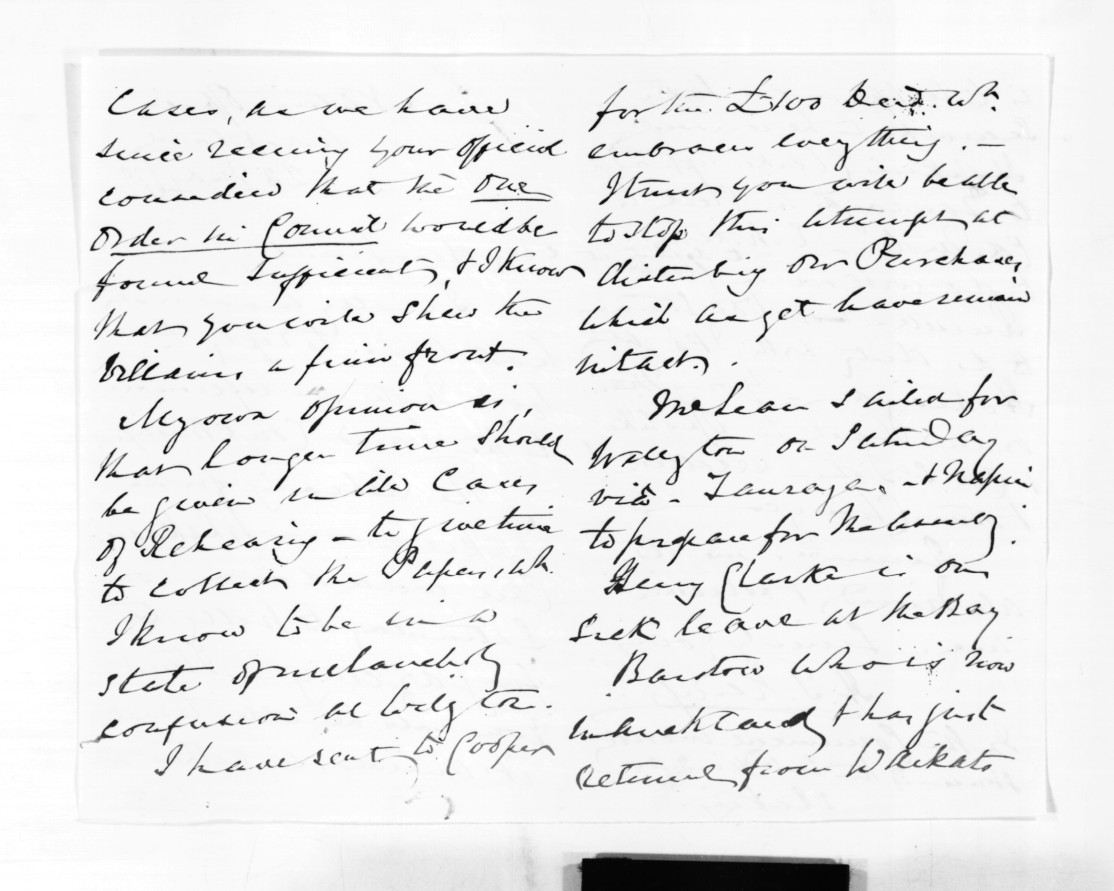 Cases, as we have
since receiving your official
considered that the One
Order in Council would be
found sufficient, & I know
that you will shew the
villains a firm front.
My own opinion is,
that longer time should
be given in like Cases
of Rehearing – to give time
to collect the Papers, wh.
I know to be in a
state of melancholy
confusion at Welgton.
I have sent to Cooper
for the £100 Deed. Wh.
embraces everything. –
I trust you will be able
to stop this attempt at
disturbing our Purchases
which as yet have remain
intact.
McLean sailed for
Welgton on Saturday
viâ – Tauranga – & Napier
to prepare for the Assembly.
Henry Clarke is on
Sick leave at the Bay
Barstow who is now
in Auckland & has just
returned from Waikato